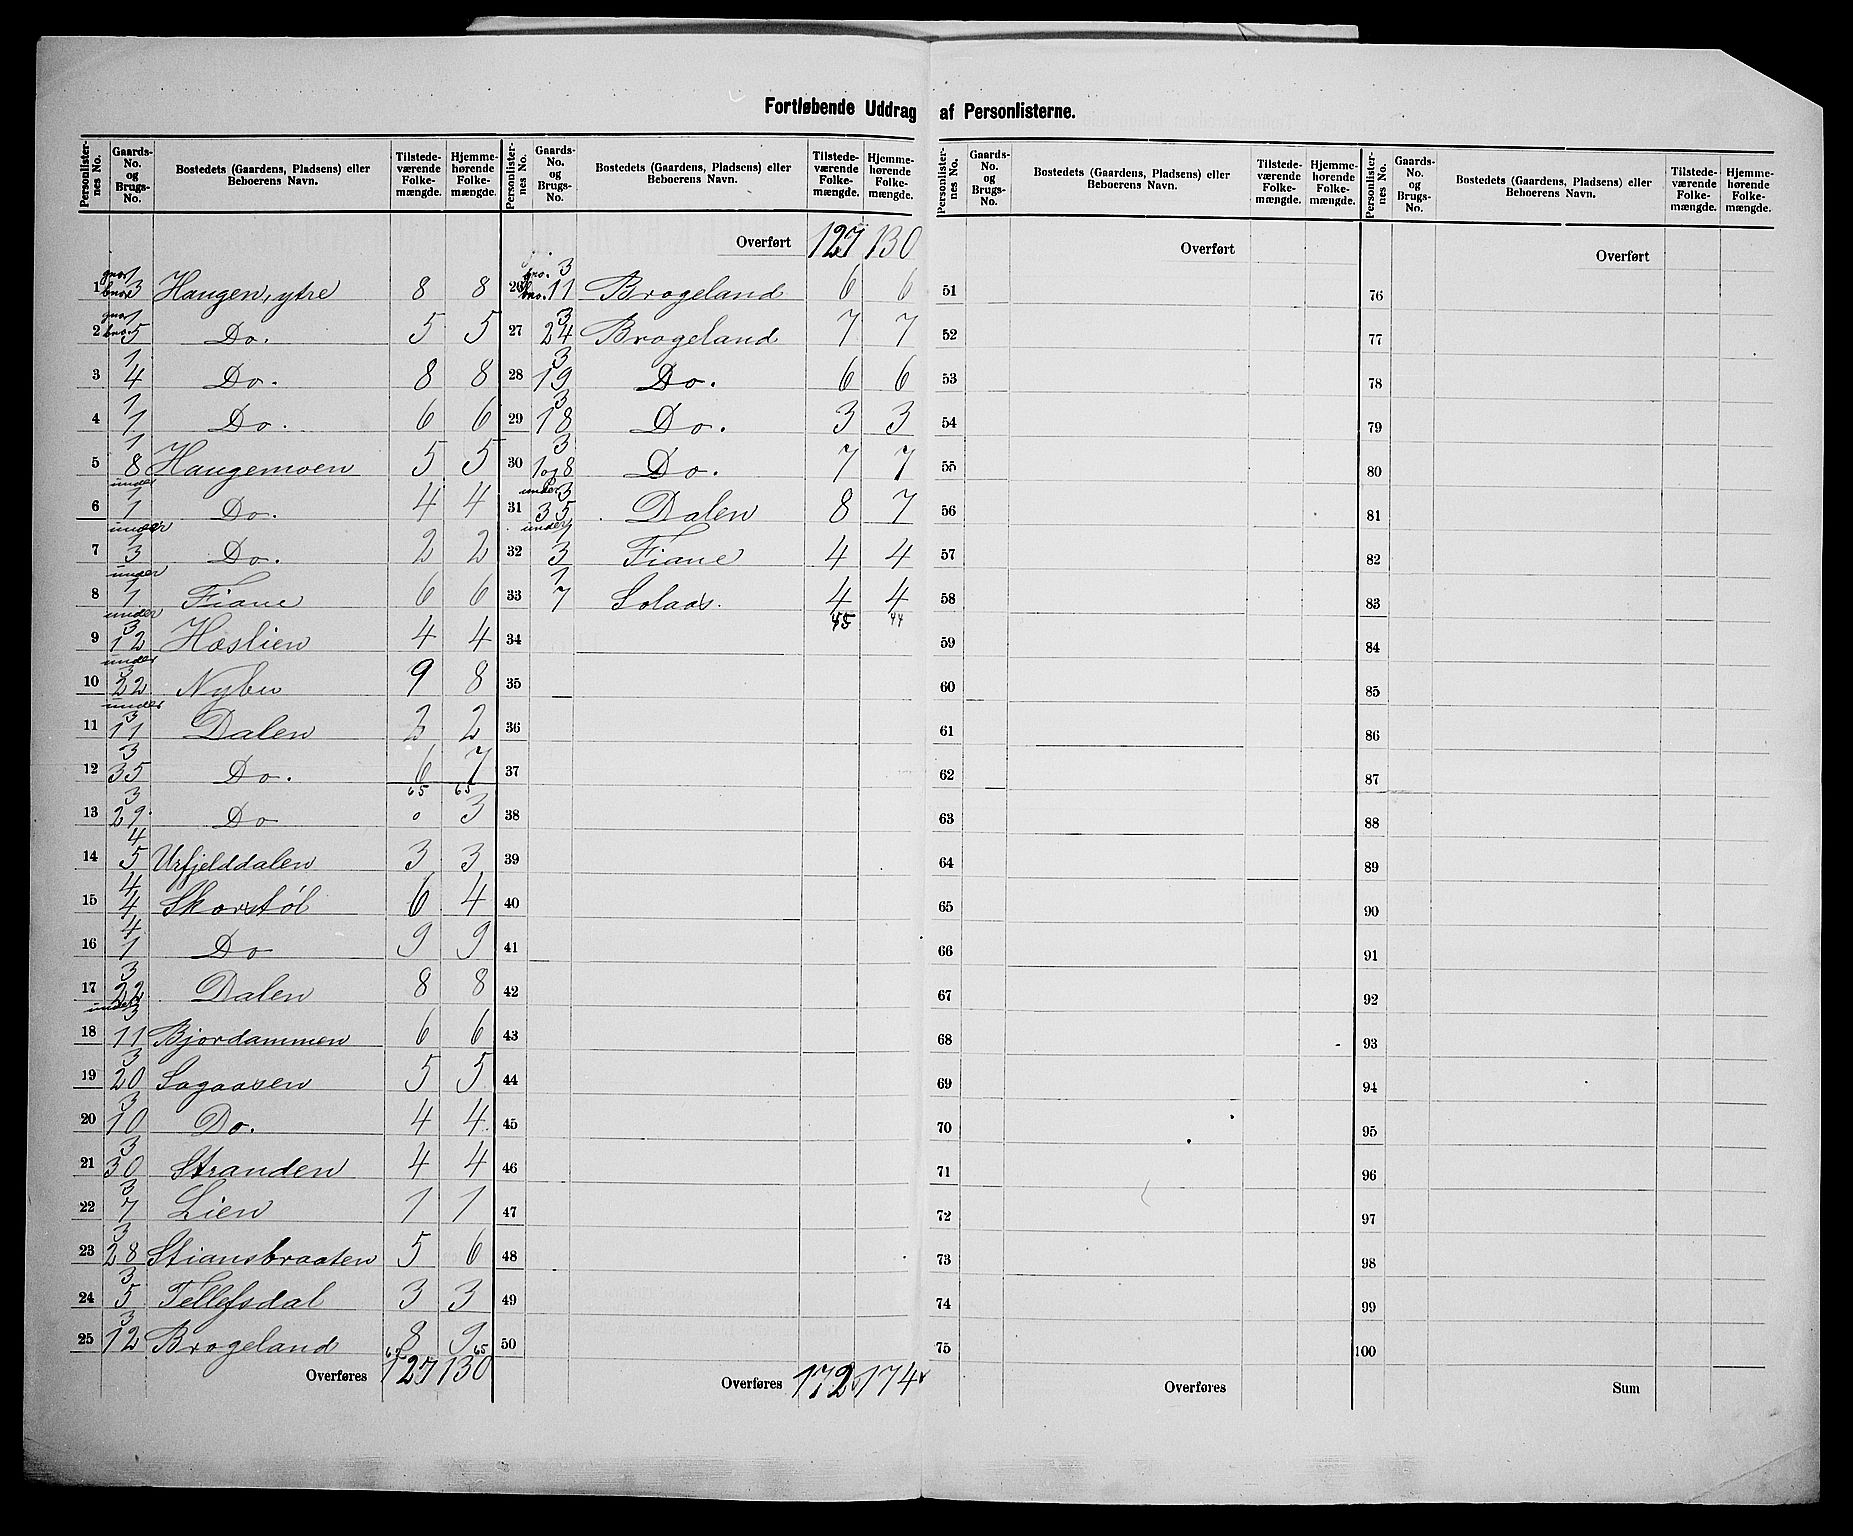 Fortløbende Uddrag af Personlisterne.
Personlister-nes No. Gaards-No. og Brugs-No. Bostedets (Gaardens, Pladsens) eller Beboerens Navn. Tilstede-værende Folke-mængde. Hjemme-hørende Folke-mængde.
Personlister-nes No. Gaards-No. og Brugs-No. Bostedets (Gaardens, Pladsens) eller Beboerens Navn. Tilstede-værende Folke-mængde. Hjemme-hørende Folke-mængde.
Personlister-nes No. Gaards-No. og Brugs-No. Bostedets (Gaardens, Pladsens) eller Beboerens Navn. Tilstede-værende Folke-mængde. Hjemme-hørende Folke-mængde.
Personlister-nes No. Gaards-No. og Brugs-No. Bostedets (Gaardens, Pladsens) eller Beboerens Navn. Tilstede-værende Folke-mængde. Hjemme-hørende Folke-mængde.
1 gno. 1 bno. 3 Haugen, ytre 8 8
2 gno. 1 bno. 5 Do. 5 5
3 1 4 Do. 8 8
4 1 1 Do. 6 6
5 1 8 Haugemoen 5 5
6 under 1 1 Do. 4 4
7 under 1 3 Do. 2 2
8 under 1 1 Fiane 6 6
9 under 3 12 Hæslien 4 4
10 under 3 22 Nybu 9 8
11 under 3 11 Dalen 2 2
12 3 35 Do. 6 7
65 65
13 3 29 Do 0 3
14 4 5 Urfjelddalen 3 3
15 4 4 Skorstøl 6 4
16 4 1 Do 9 9
17 3 22 Dalen 8 8
18 under 3 11 Bjordammen 6 6
19 3 20 Sagaasen 5 5
20 3 10 Do. 4 4
21 3 30 Stranden 4 4
22 3 7 Lien 1 1
23 3 28 Stiansbraaten 5 6
24 3 5 Tellefsdal 3 3
25 3 12 Brogeland 8 9
62 65
Overføres 127 130
Overført 127 130
26 gno. 3 bno. 11 Brogeland 6 6
27 3 24 Brogeland 7 7
28 3 19 Do. 6 6
29 3 18 Do. 3 3
30 3 1 og 8 Do. 7 7
31 under 3 35 Dalen 8 7
32 under 1 3 Fiane 4 4
33 1 7 Solaas. 4 4
45 44
34
35
36
37
38
39
40
41
42
43
44
45
46
47
48
49
50
Overføres 172 174
Overført
51
52
53
54
55
56
57
58
59
60
61
62
63
64
65
66
67
68
69
70
71
72
73
74
75
Overføres
Overført
76
77
78
79
80
81
82
83
84
85
86
87
88
89
90
91
92
93
94
95
96
97
98
99
100
Sum